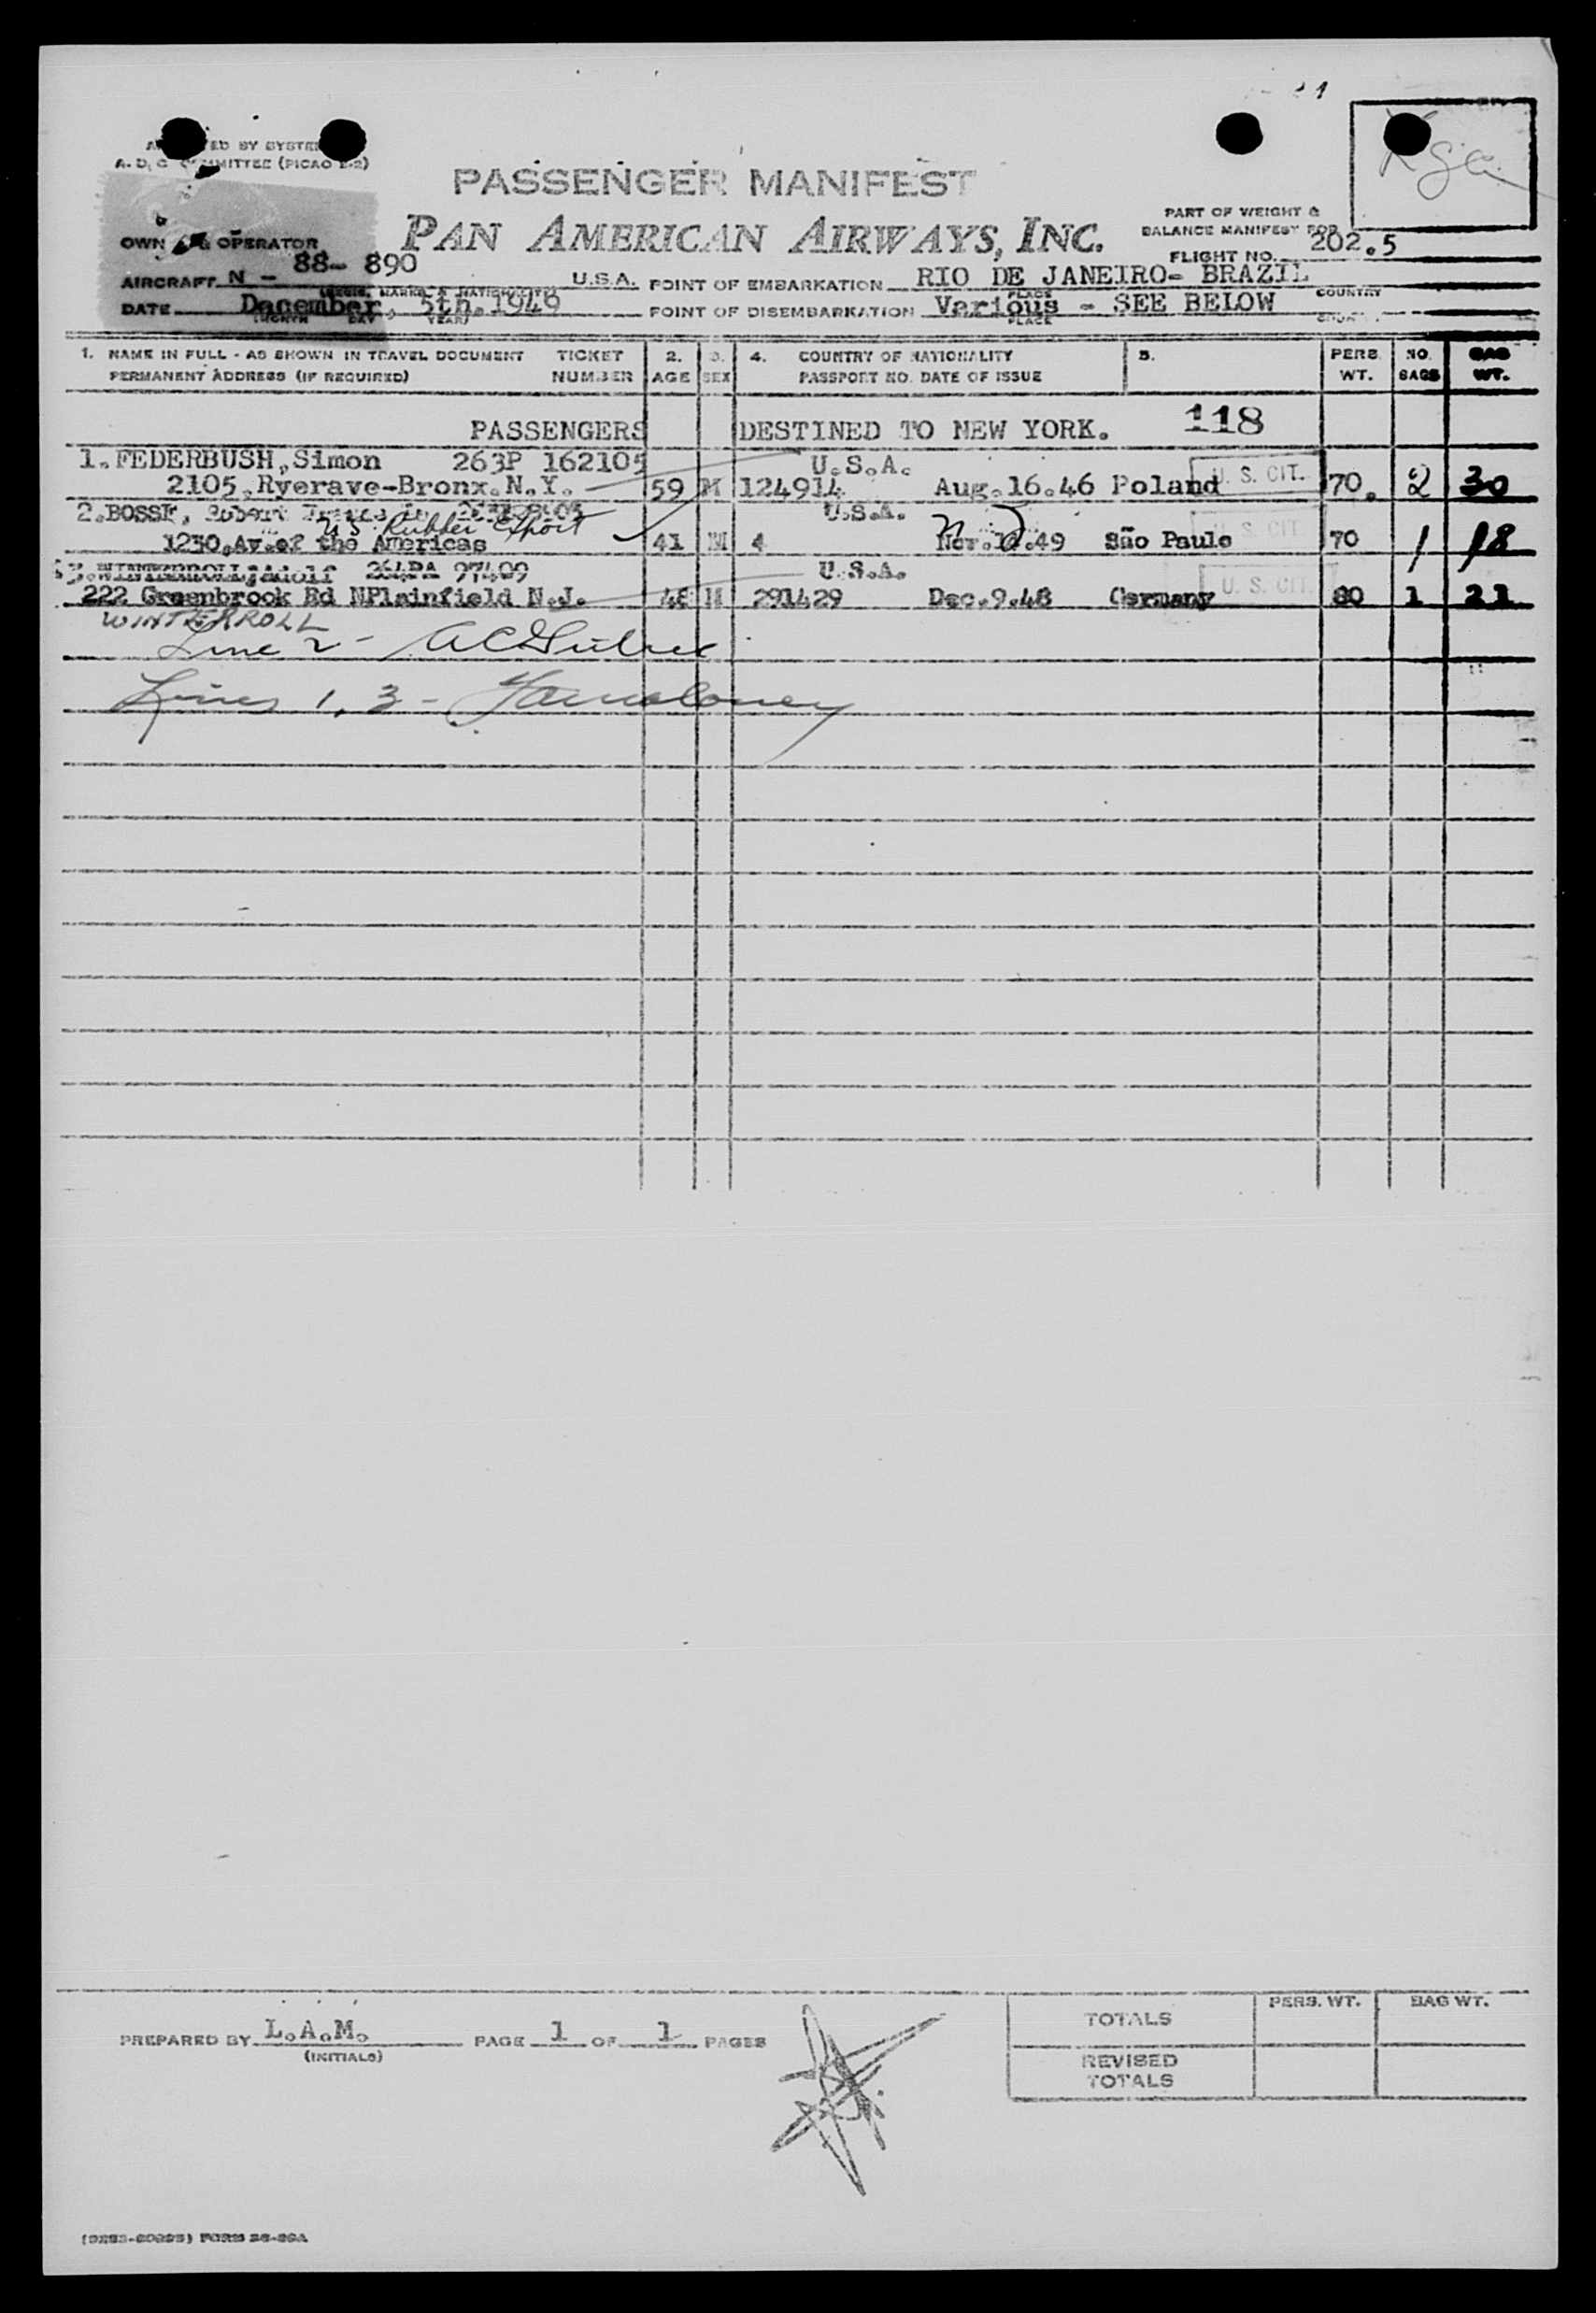 PASSENGER MANIFEST
PAN AMERICAN AIRWAYS, INC.
PART OF WEIGHT &
BALANCE MANIFEST FOR
OPERATOR
FLIGHT NO. 202.5
AIRCRAFT N - 88- 890 U.S.A. POINT OF EMBARKATION RIO DE JANEIRO- BRAZIL
PLACE COUNTRY
DATE December, 5th.1949 POINT OF DISEMBARKATION Various - SEE BELOW
PLACE
1. NAME IN FULL - AS SHOWN IN TRAVEL DOCUMENT TICKET 2. 3. 4. COUNTRY OF NATIONALITY 5. PERS. NO. BAG
PERMANENT ADDRESS (IF REQUIRED) NUMBER AGE SEX PASSPORT NO. DATE OF ISSUE WT. BAGS WT.
PASSENGERS DESTINED TO NEW YORK. 118
1.FEDERBUSH,Simon 263P 162105 U.S.A.
2105.Ryerave-Bronx.N.Y. 59 M 124914 Aug.16.46 Poland U. S. CIT. 70. 2 30
2.BOSSE, Robert U.S.A.
US Rubber Export
1230.Av.of the Americas 41 M 4 Nov. .49 São Paulo U. S. CIT. 70 1 18
3.WINTERROLL,Adolf 264PA 97409 U.S.A.
222 Greenbrook Rd NPlainfield N.J. 48 M 291429 Dec.9.48 Germany U. S. CIT. 80 1 21
WINTERROLL
Line 2 -
Lines 1, 3 -
PREPARED BY L.A.M. PAGE 1 OF 1 PAGES
(INITIALS)
TOTALS PERS. WT. BAG WT.
REVISED
TOTALS